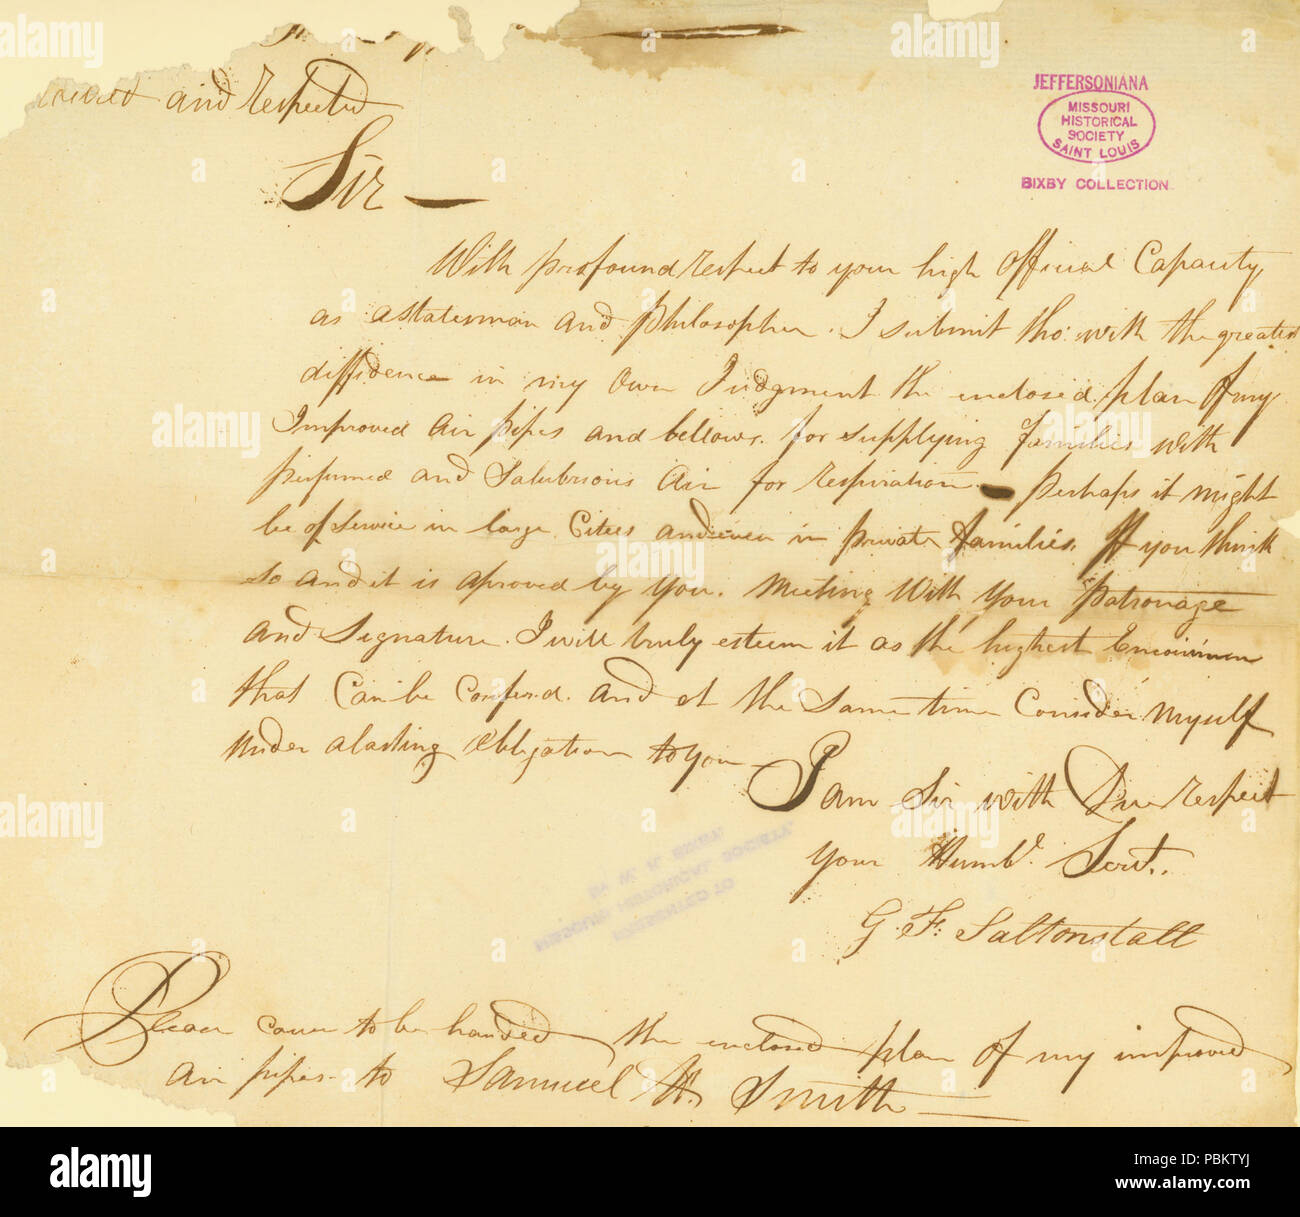 and respected
JEFFERSONIANA
MISSOURI
HISTORICAL
SOCIETY
SAINT LOUIS
BIXBY COLLECTION
Sir —
With profound respect to your high Official Capacity,
as a Statesman and Philosopher. I submit tho: with the greatest
diffidence in my Own Judgment the enclosed plan Of my
Improved Air pipes and bellows. for supplying families with
perfumed and Salubrious Air for respiration — perhaps it might
be of service in large Cities and even in private families. If you think
so and it is aproved by you. Meeting With Your Patronage
and Signature. I will truly esteem it as the highest
that Can be Confer.d. and at the Same time Consider Myself
Under a lasting Obligation to you —
I am Sir with Due respect
your Humbl. Servt.
G. F. Saltonstall
MISSOURI HISTORICAL SOCIETY
Please cause to be handed the enclosed plan Of my improved
air pipes to Samuel H. Smith —
alamy
PBKTYJ
www.alamy.com